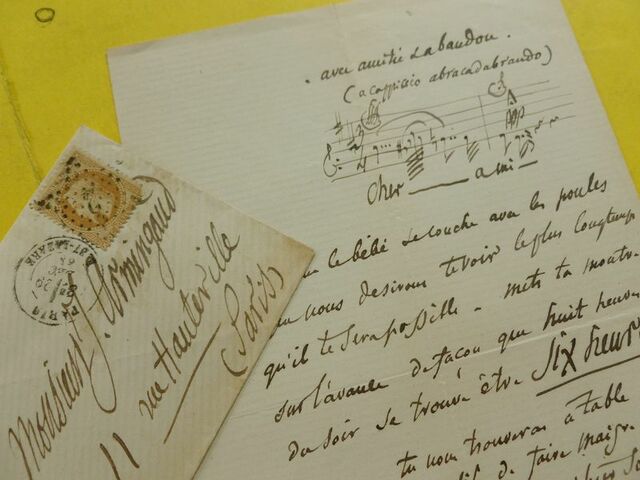 avec amitié
(a cappissio abracadabrando)
Cher ami
le bébé se couche avec les poules
nous desirons te voir le plus longtemps
qu'il te sera possible - mets ta montre
sur l'avance de façon que huit heures
du soir se trouve être six heures
tu nous trouveras à table
de faire maigre
Monsieur J. Armingaud
11 rue Hauteville
(Paris)
PARIS